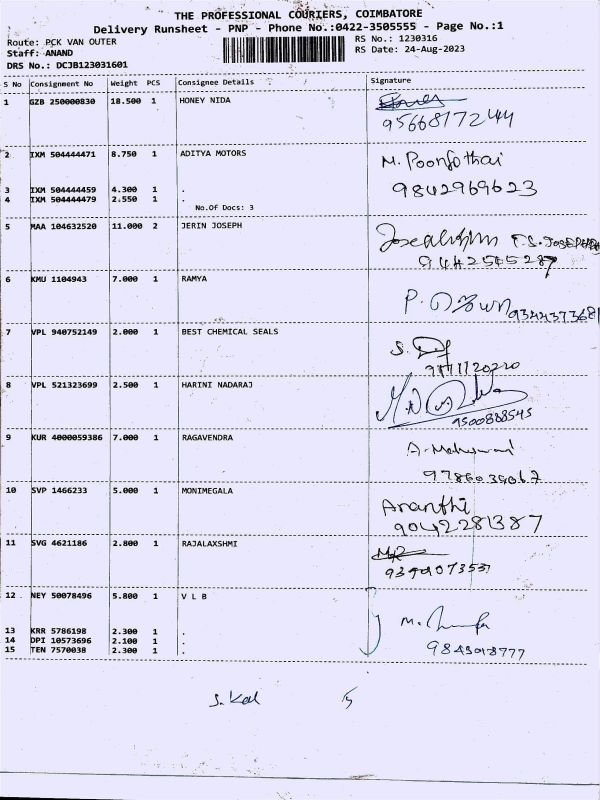 THE PROFESSIONAL COURIERS, COIMBATORE
Delivery Runsheet - PNP - Phone No.:0422-3505555 - Page No.:1
Route: PCK VAN OUTER
RS No.: 1230316
Staff: ANAND
RS Date: 24-Aug-2023
DRS No.: DCJB123031601
S No Consignment No Weight PCS Consignee Details Signature
1 GZB 250000830 18.500 1 HONEY NIDA
9566817244
2 IXM 504444471 8.750 1 ADITYA MOTORS
3 IXM 504444459 4.300 1 . 9842969623
4 IXM 504444479 2.550 1 .
No.Of Docs: 3
5 MAA 104632520 11.000 2 JERIN JOSEPH
6 KMU 1104943 7.000 1 RAMYA
7 VPL 940752149 2.000 1 BEST CHEMICAL SEALS
8 VPL 521323699 2.500 1 HARINI NADARAJ
9500888545
9 KUR 4000059386 7.000 1 RAGAVENDRA
10 SVP 1466233 5.000 1 MONIMEGALA
Ananthi
9042281387
11 SVG 4621186 2.800 1 RAJALAXSHMI
12 NEY 50078496 5.800 1 V L B
13 KRR 5786198 2.300 1 .
14 DPI 10573696 2.100 1 .
15 TEN 7570038 2.300 1 .